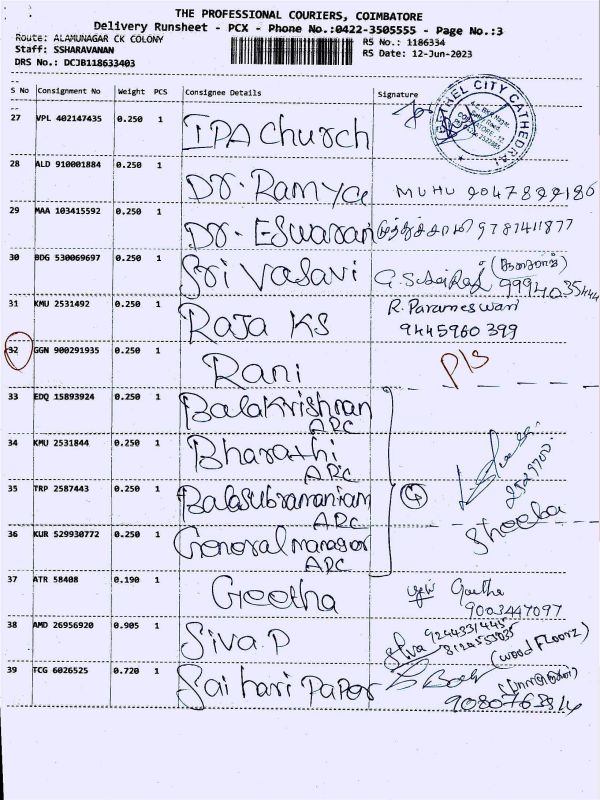 THE PROFESSIONAL COURIERS, COIMBATORE
Delivery Runsheet - PCX - Phone No.:0422-3505555 - Page No.:3
Route: ALAMUNAGAR CK COLONY
RS No.: 1186334
Staff: SSHARAVANAN
RS Date: 12-Jun-2023
DRS No.: DCJB118633403
S No Consignment No Weight PCS Consignee Details Signature
27 VPL 402147435 0.250 1 IPA Church
BETHEL CITY CATHEDRAL
28 ALD 910001884 0.250 1 Dr. Ramya MUHU 9047899186
29 MAA 103415592 0.250 1 Dr. Eswaran 9787411877
30 BDG 530069697 0.250 1 Sri Vasavi 9994035444
31 KMU 2531492 0.250 1 Raja KS R. Parameswari
9445960 399
32 GGN 900291935 0.250 1 Rani
33 EDQ 15893924 0.250 1 Balakrishnan
ARC
34 KMU 2531844 0.250 1 Bharathi
ARC
35 TRP 2587443 0.250 1 Balasubramaniam
ARC
Sheeba
36 KUR 529930772 0.250 1 General manager
ARC
37 ATR 58408 0.190 1 Geetha Geetha
9003447097
38 AMD 26956920 0.905 1 Siva.P Siva
(Wood Floorz)
39 TCG 6026525 0.720 1 Sai hari Paper